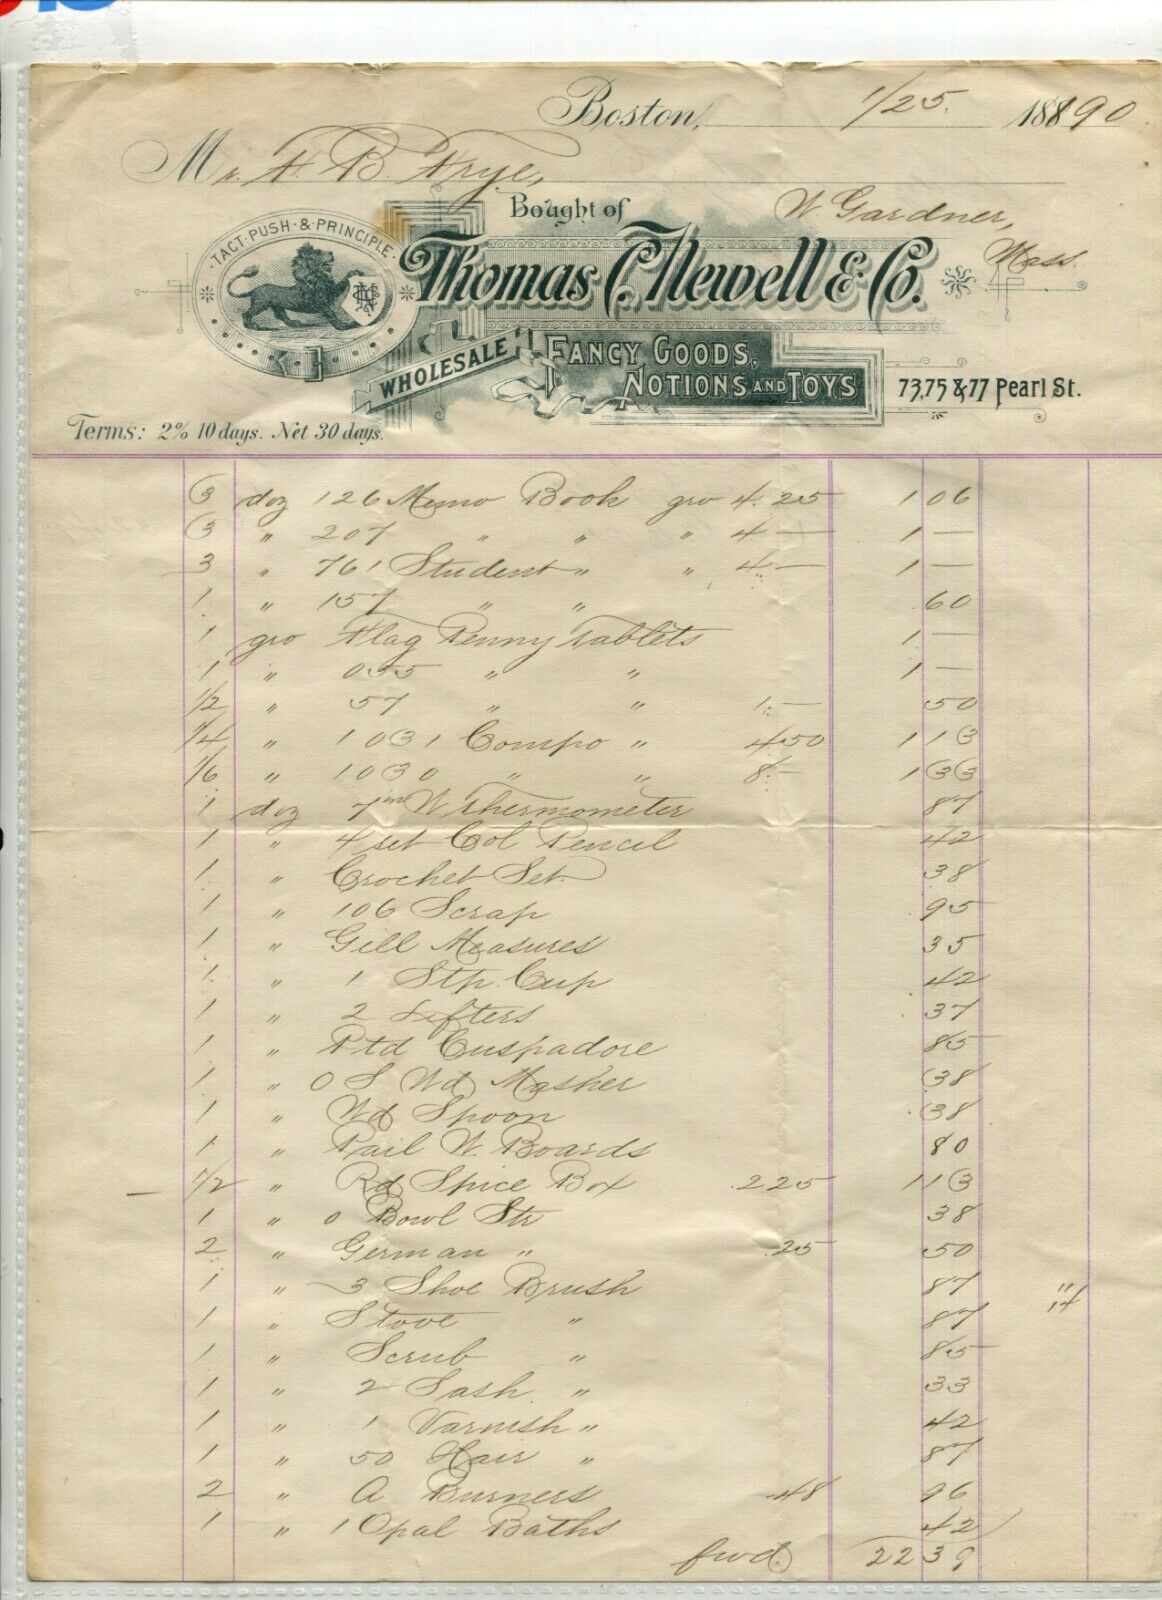 Boston, 1/25. 188190
Mr. H. B. Frye,
Bought of W Gardner,
Mass.
TACT · PUSH · & · PRINCIPLE
Thomas C. Newell & Co.
WHOLESALE FANCY GOODS,
NOTIONS AND TOYS
73, 75 & 77 Pearl St.
Terms: 2% 10 days. Net 30 days.
3 doz 126 Memo Book gro 4.25 1 06
3 " 207 " " " 4 — 1 —
3 " 761 Student " " 4 — 1 —
1 " 157 " " 60
1 gro Flag Penny Tablets 1 —
1 " 055 " " 1 —
1/2 " 57 " " 1.— 50
1/4 " 1031 Compo " 4.50 1 13
1/6 " 1030 " " 8.— 1 33
1 doz 7 in W Thermometer 87
1 " 4 set Col Pencil 42
1 " Crochet Set 38
1 " 106 Scrap 95
1 " Gill Measures 35
1 " 1 Stp. Cup 42
1 " 2 Lifters 37
1 " Ptd Cuspadore 85
1 " 0 S Wd Masher 38
1 " Wd Spoon 38
1 " Pail W. Boards 80
— 1/2 " Rd Spice Box 2 25 1 13
1 " 0 Bowl Str 38
2 " German " .25 50
1 " 3 Shoe Brush 87
1 " Stove " 87
1 " Scrub " 85
1 " 2 Sash " 33
1 " 1 Varnish " 42
1 " 50 Hair " 87
2 " A Burners .48 96
1 " 1 Opal Baths 42
fwd. 22 39